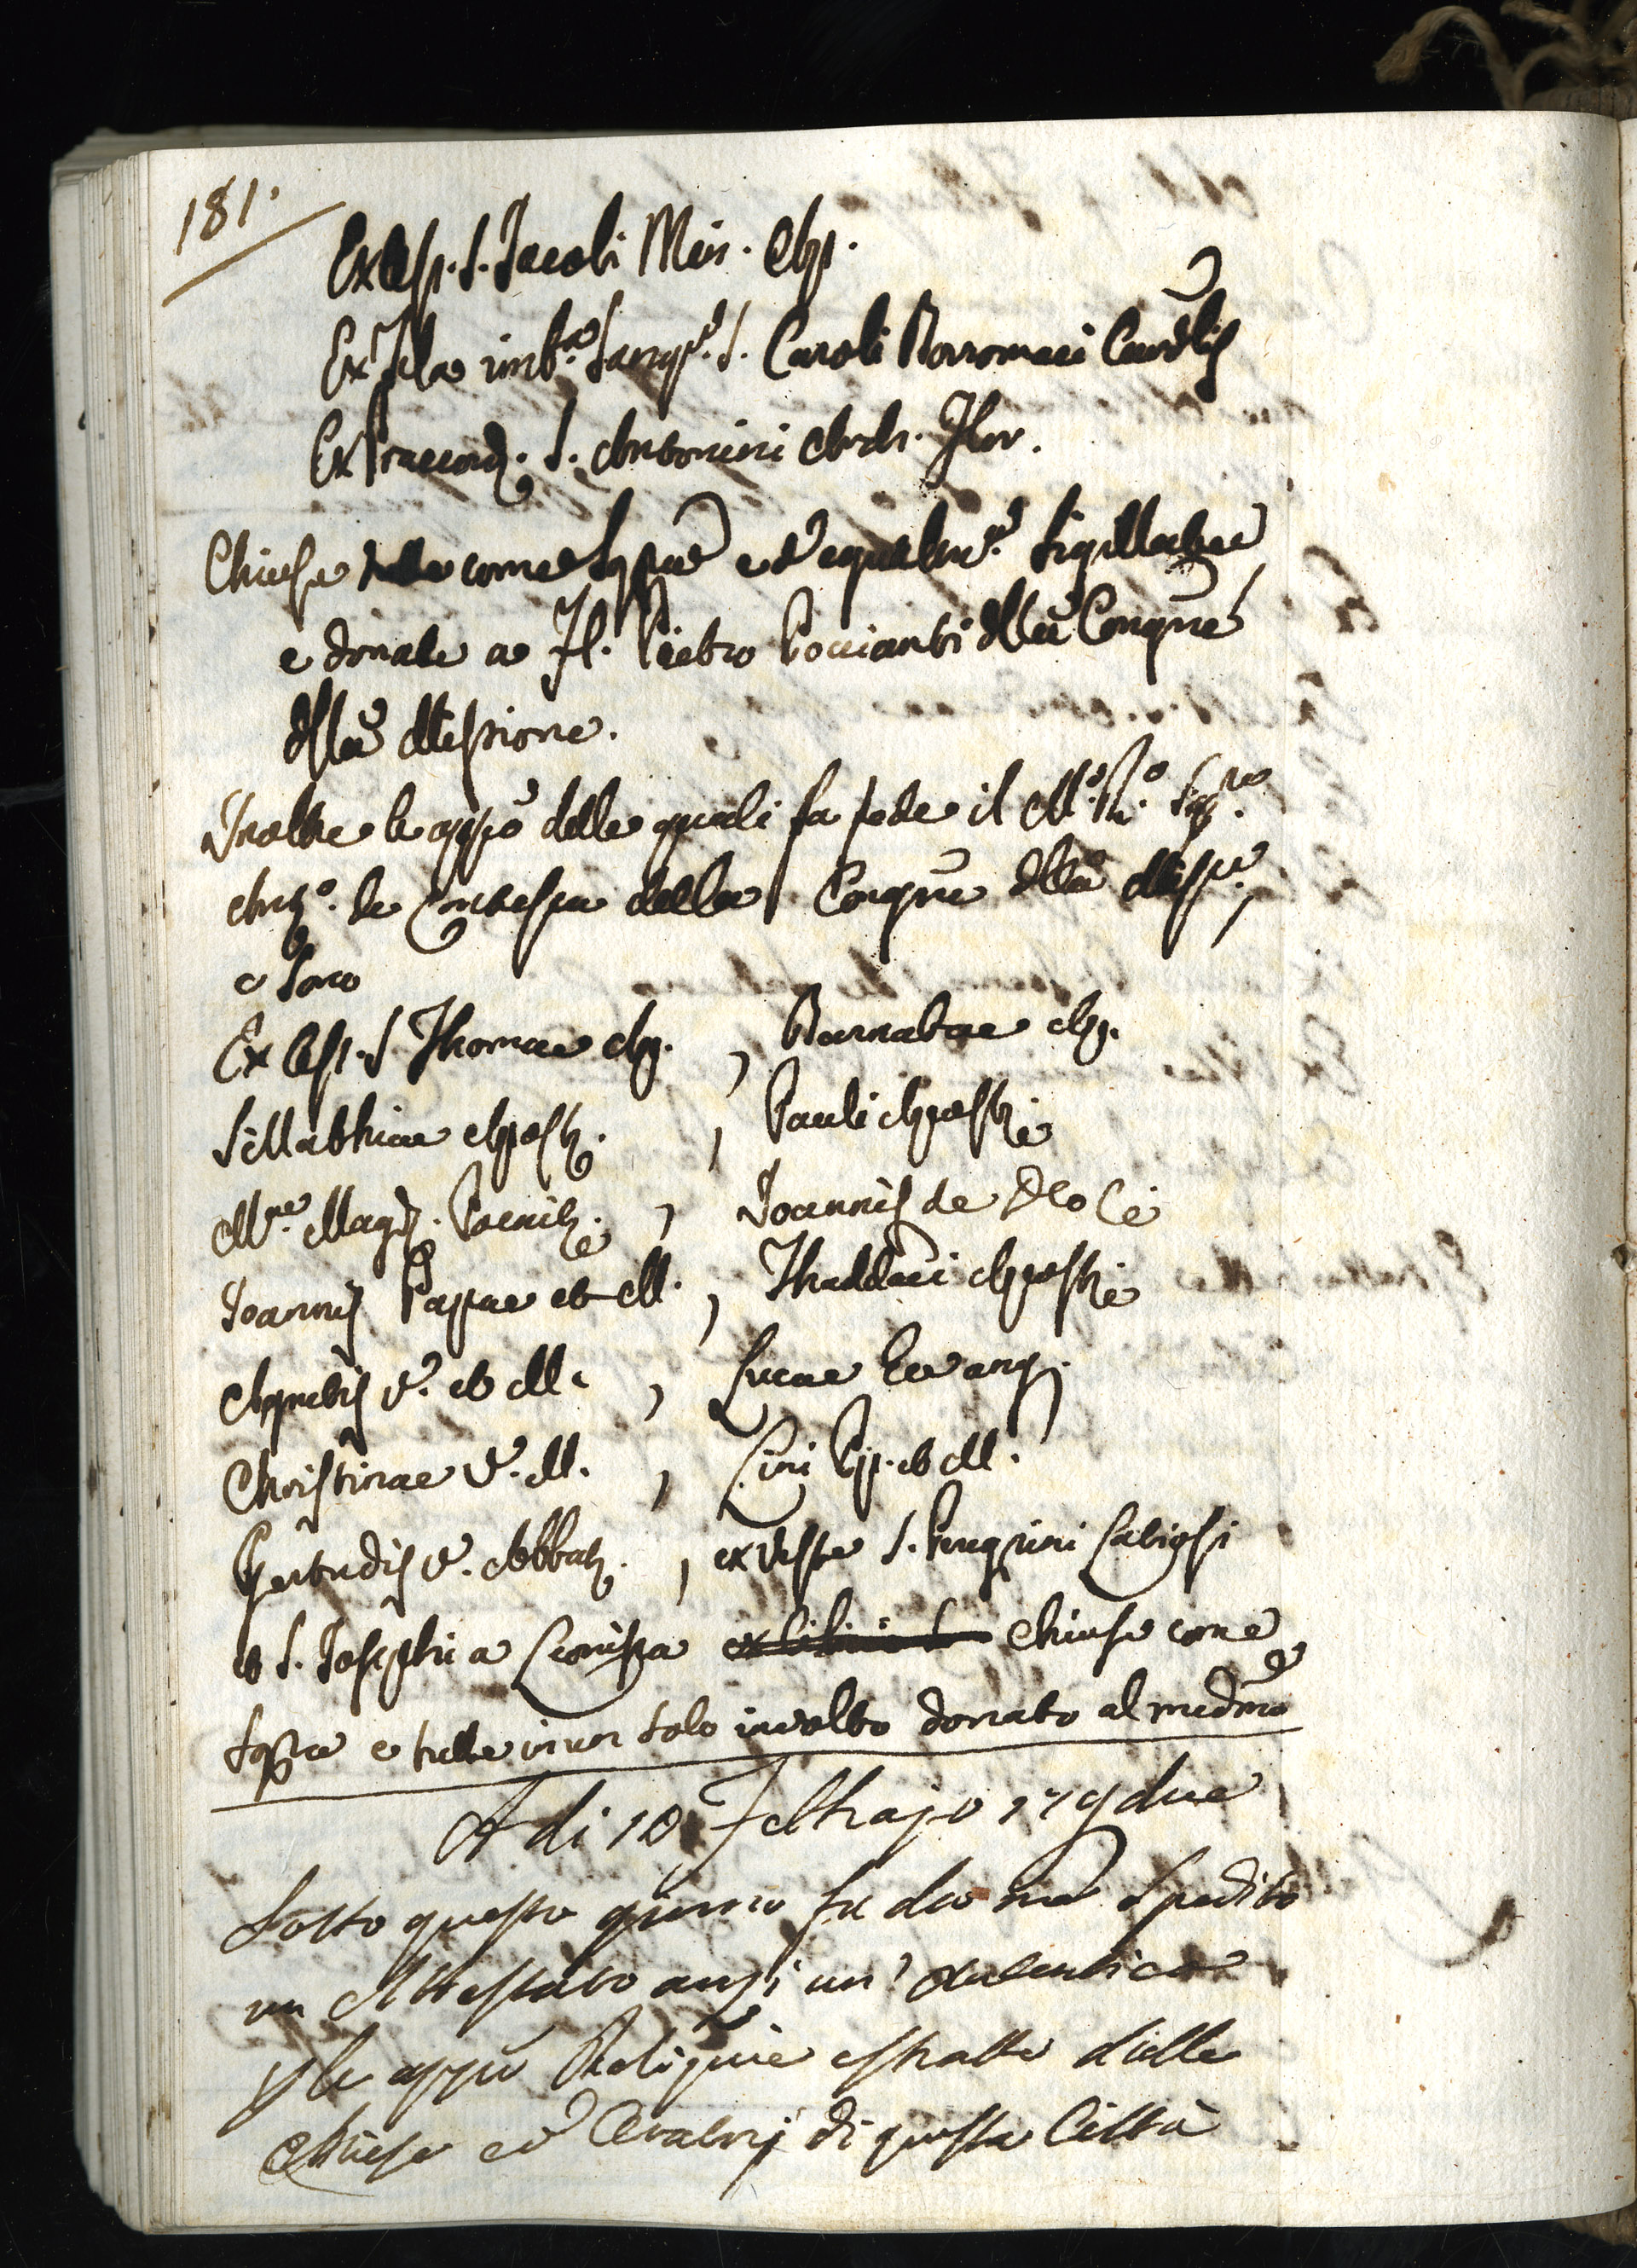 181.
Ex Cesp. S. Jacobi Min. Ap.
Ex Tela imb.a Sang.e S. Caroli Borromaei Cardlis
Ex Praecord. S. Antonini Arch. Flor.
Chiuse tutte come sopra ed equalm.e sigillate,
e donate a Fl. Pietro Pocianti della Congne
della Missione.
Inoltre le appo delle quali fa fede il M.o R.o Sig.re
Ang.o de della Congne della Miss.e,
e sono
Ex Cesp. S Thomae Ap. , Barnabae Ap.
S Matthiae Apost. , Pauli Apost.
M.ae Magd. Poenit. , Joannis de Deo C
Joannis Papae et M. , Thaddaei Apost.
Agnetis V. et M. , Lucae Evang.
Christinae V. M. , Lini Pp. et M.
Gertrudis V. Abbat. , ex Veste S. Peregrini Latiosi
et S. Josephi a Leonissa chiuse come
sopra e tutte in un solo involto donato al medmo
A di 10 Febbrajo 179due
Sotto questo giorno fu da me spedito
un Attestato anzi un' autentica
p le appo Reliquie estratte dalle
Chiese ed Oratorj di questa Città